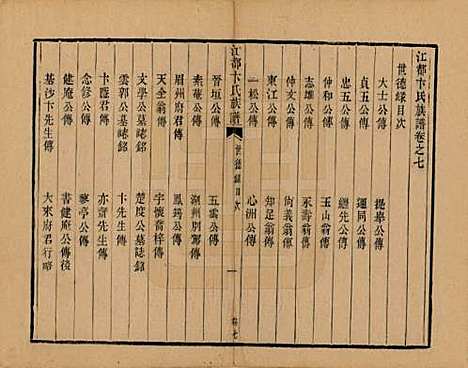 江都卞氏族譜卷之七
世德錄目次
大士公傳 提舉公傳
貞五公傳 運同公傳
忠五公傳 繼先公傳
仲和公傳 玉山翁傳
志堰公傳 永壽翁傳
仲文公傳 尚義翁傳
東江公傳 知足翁傳
一松公傳 心洲公傳
江都卞氏族譜 世德錄目次 一 卷七
晉垣公傳 五雲公傳
素菴公傳 潮州別駕傳
眉州府君傳 鳳鍔公傳
天全翁傳 宇懷畜梓傳
文學公墓誌銘 楚度公墓誌銘
雲郭公墓誌銘 卞先生傳
卞匯君傳 亦齋先生傳
念修公傳 寧亭公傳
健庵公傳 書健庵公傳後
基沙卞先生傳 大來府君行略